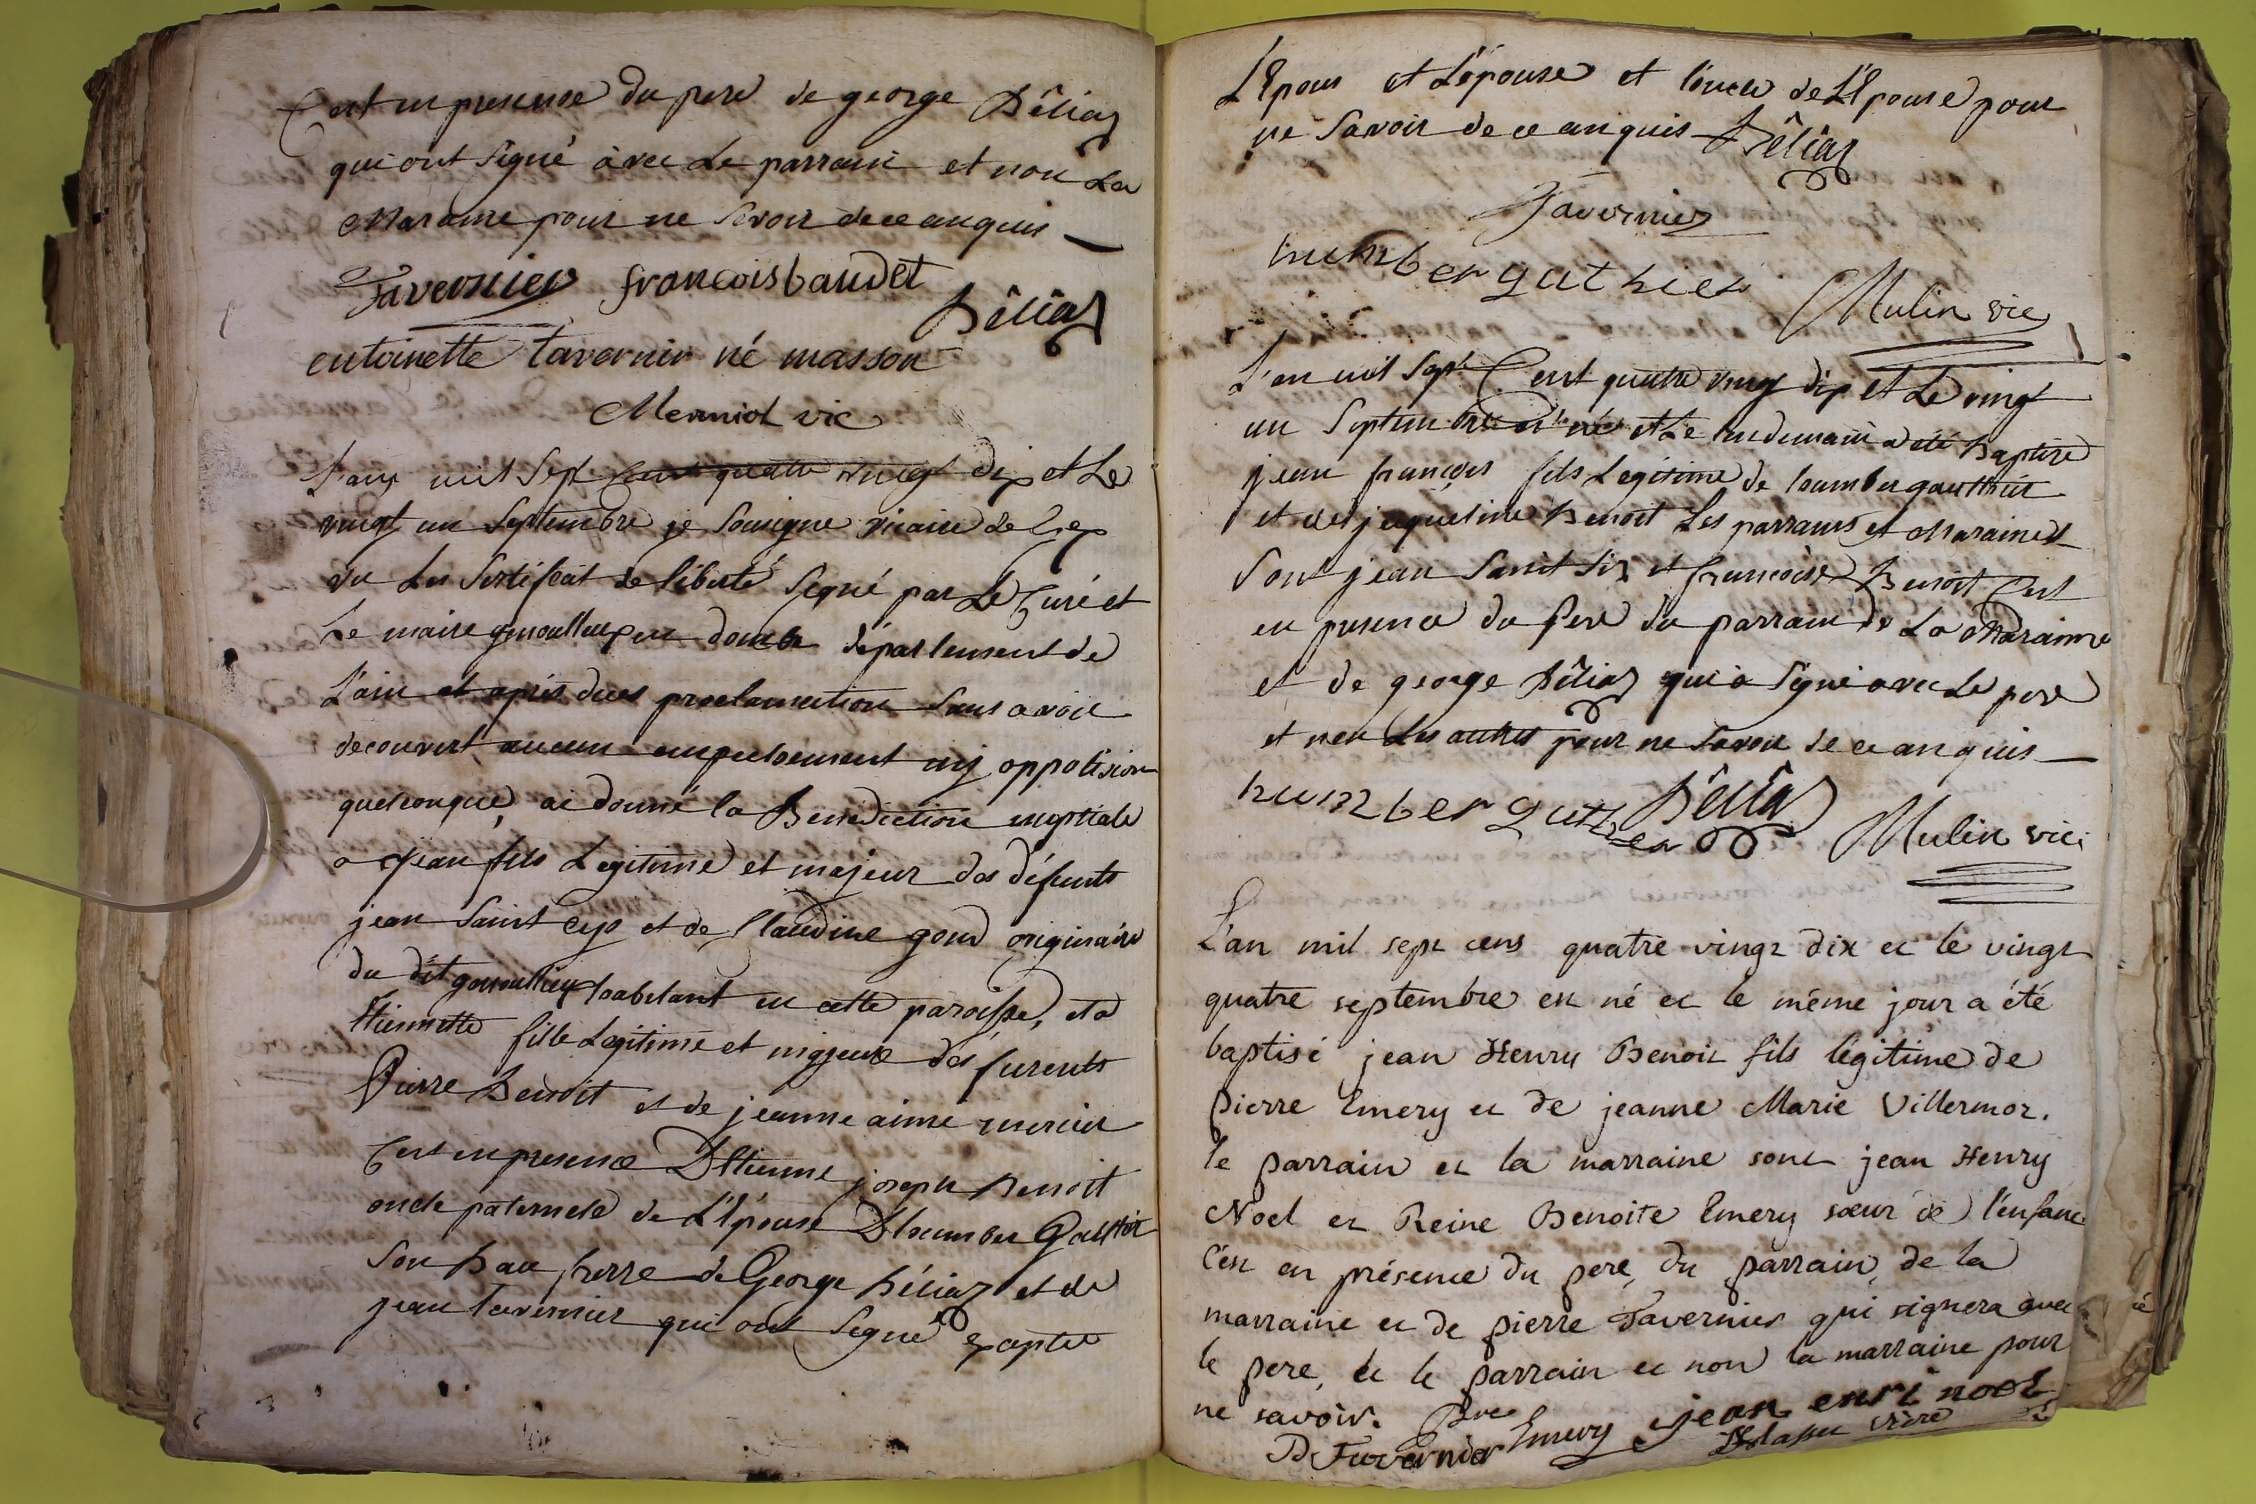 C'est en presence du pere de george Bêliaz
qui ont signé àvec Le parrain et non La
Maraine pour ne Savoir dece anquis
Tavernier françois baudet
Bêliaz
entoinette tavernir né masson
Mermiol vic
L'ans mil Sept Cent quatre vingt dix et Le
vingt un Septembre je Sousigne vicaire de Gex
vu Les Sertificat de liberté Signé par Le Curé et
Le maire genoullieux en dombe départemsent de
L'ain et après dues proclamation Sans avoir
decouvert aucun empechement nij oppotision
quelconque, ai donné la Benediction nuptiale
a Jean fils Legitime et majeur des défunts
jean Saint Cyr et de Claudine goud originaire
du dit genoullieux habitant en cette paroisse, et a
Etiennette fille Legitime et majeure des furents
Pierre Benoit et de jeanne aime mercier
C'est en presence D'Etienne joseph Benoit
oncle paternele de L'Epouse D'humber Gauthir
Son Bau frerre de George Béliaz et de
jean Tavernier qui ont Signé exapte
L'Epous et L'épouse et l'oncle de L'Epouse pour
ne Savoir de ce anquis Bêliaz
Tavernier
humber guthier
Mulin vic
L'an mil Sept Cent quatre vingt dix et Le vingt
un Septembre est né et Le lendemain a été Baptisé
jean françois fils Legitime de humber gauthier
et de jaqueline Benoit Les parrains et Maraines
Sont jean Saint Sir et françoise Benoit C'est
en presence du Pere du parrain de La Maraine
et de george Bêliaz qui a Signé avec Le pere
et non Les autres pour ne Savoir de ce anquis
humber guthier Bêliaz Mulin vic:
L'an mil sept cens quatre vingt dix et le vingt
quatre septembre est né et le même jour a été
baptisé jean Henry Benoit fils légitime de
Pierre Emery et de jeanne Marie Villermoz.
le parrain et la marraine sont jean Henry
Noel et Reine Benoite Emery sœur de l'enfant
C'est en présence du pere, du parrain, de la
marraine et de pierre Tavernier qui signera avec
le pere, et le parrain et non la marraine pour
ne savoir.
Emery jean enri noel
P Tavernier